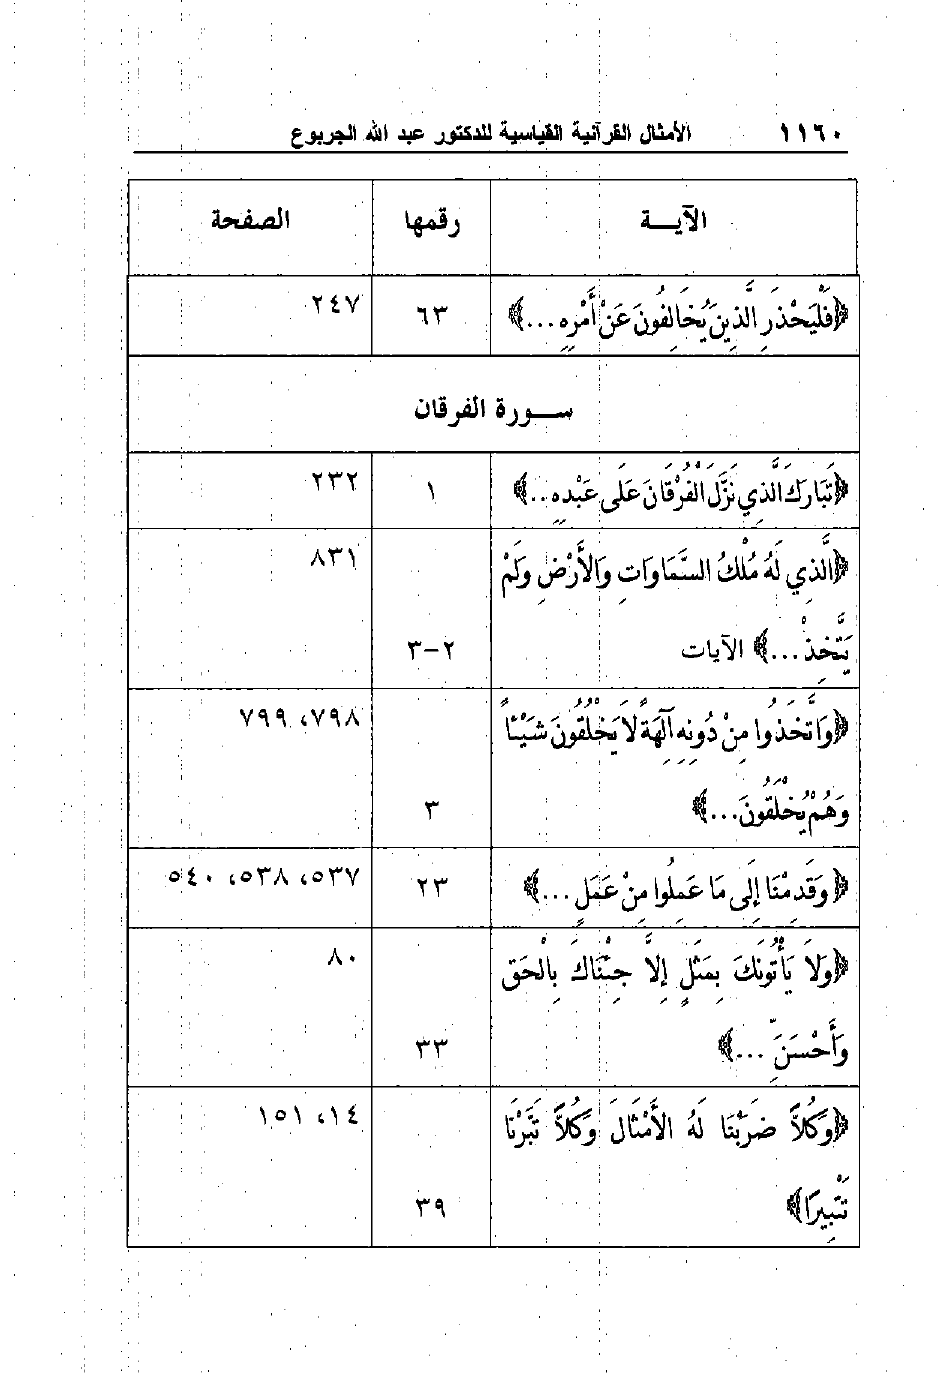 ١١٦٠ الأمثال القرآنية القياسية للدكتور عبد الله الجربوع
الآيـــة رقمها الصفحة
﴿فَلْيَحْذَرِ الَّذِينَ يُخَالِفُونَ عَنْ أَمْرِهِ...﴾ ٦٣ ٢٤٧
ســورة الفرقان
﴿تَبَارَكَ الَّذِي نَزَّلَ الْفُرْقَانَ عَلَى عَبْدِهِ...﴾ ١ ٢٣٢
﴿الَّذِي لَهُ مُلْكُ السَّمَاوَاتِ وَالأَرْضِ وَلَمْ ٨٣١
يَتَّخِذْ...﴾ الآيات ٢-٣
﴿وَاتَّخَذُوا مِنْ دُونِهِ آلِهَةً لا يَخْلُقُونَ شَيْئاً ٧٩٨، ٧٩٩
وَهُمْ يُخْلَقُونَ...﴾ ٣
﴿وَقَدِمْنَا إِلَى مَا عَمِلُوا مِنْ عَمَلٍ...﴾ ٢٣ ٥٣٧، ٥٣٨، ٥٤٠
﴿وَلاَ يَأْتُونَكَ بِمَثَلٍ إِلاَّ جِئْنَاكَ بِالْحَقِّ ٨٠
وَأَحْسَنَ ...﴾ ٣٣
﴿وَكُلاًّ ضَرَبْنَا لَهُ الأَمْثَالَ وَكُلاًّ تَبَّرْنَا ١٤، ١٥١
تَتْبِيرًا﴾ ٣٩